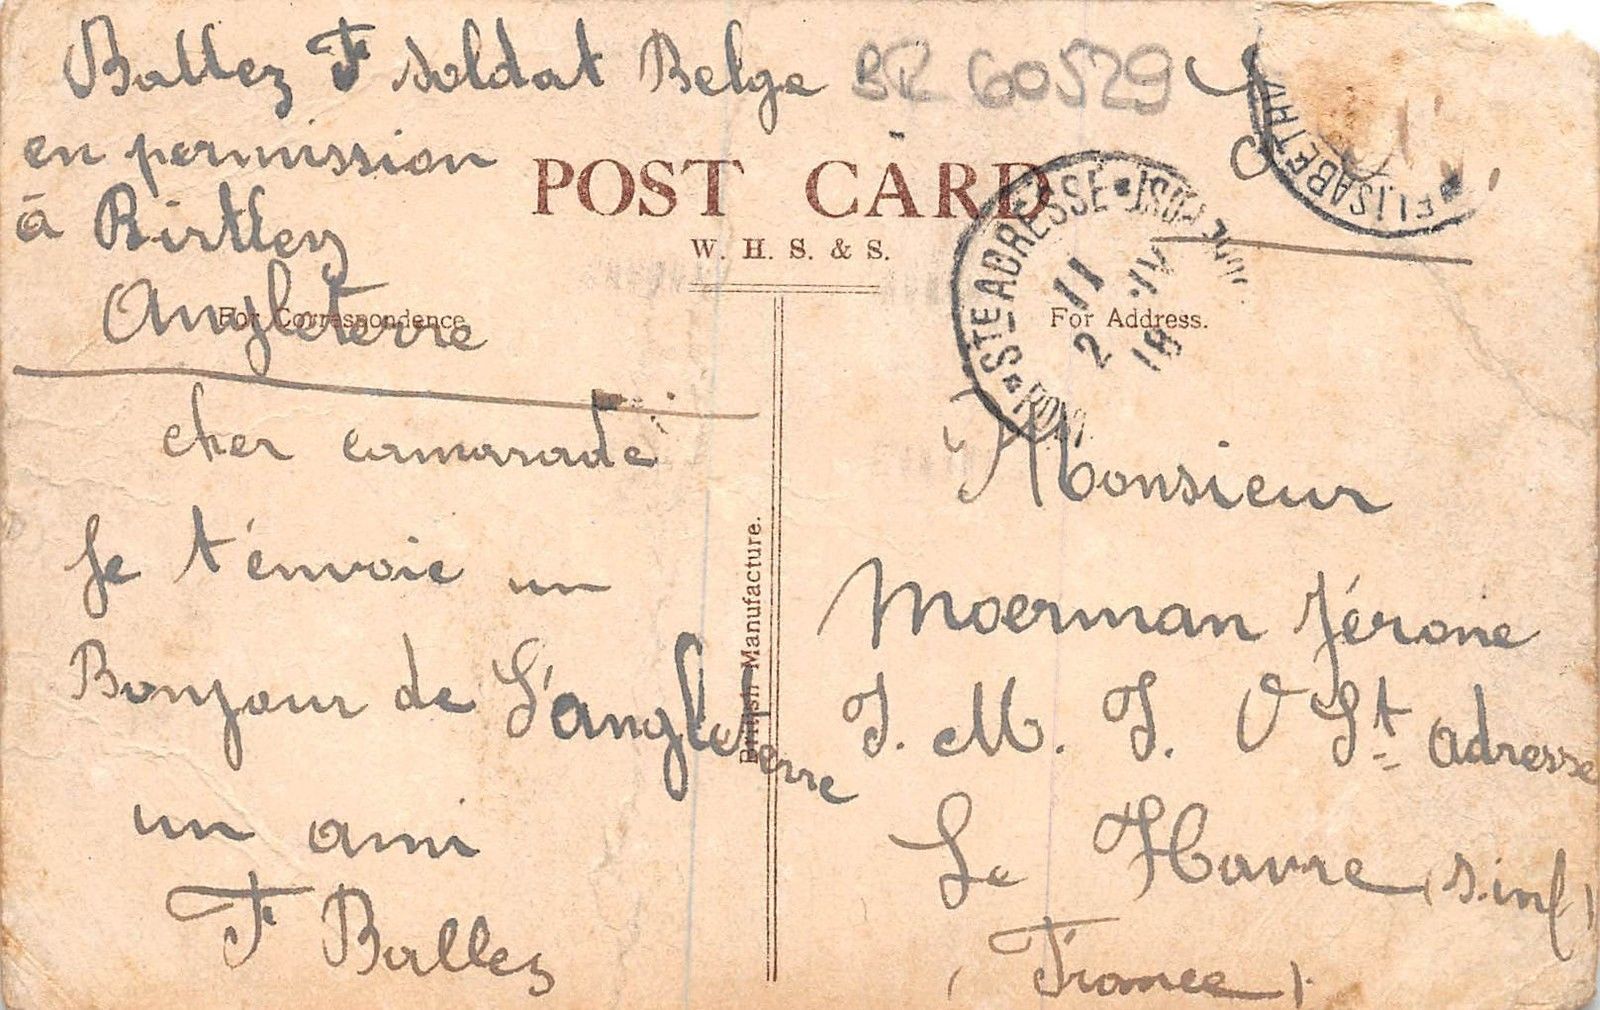 Ballez F soldat Belge BR 60529
en permission
à Birtley
Angleterre
POST CARD
W. H. S. & S.
For Correspondence
For Address.
STE ADRESSE
11
2
18
ELISABETHV
cher camarade
Je t'envoie un
Bonjour de L'angleterre
un ami
F Ballez
British Manufacture.
Monsieur
Moerman Jérome
I. M. I. St adresse
Le Havre (s.inf)
(France)